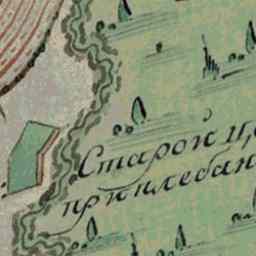 Старой ц
при плебан